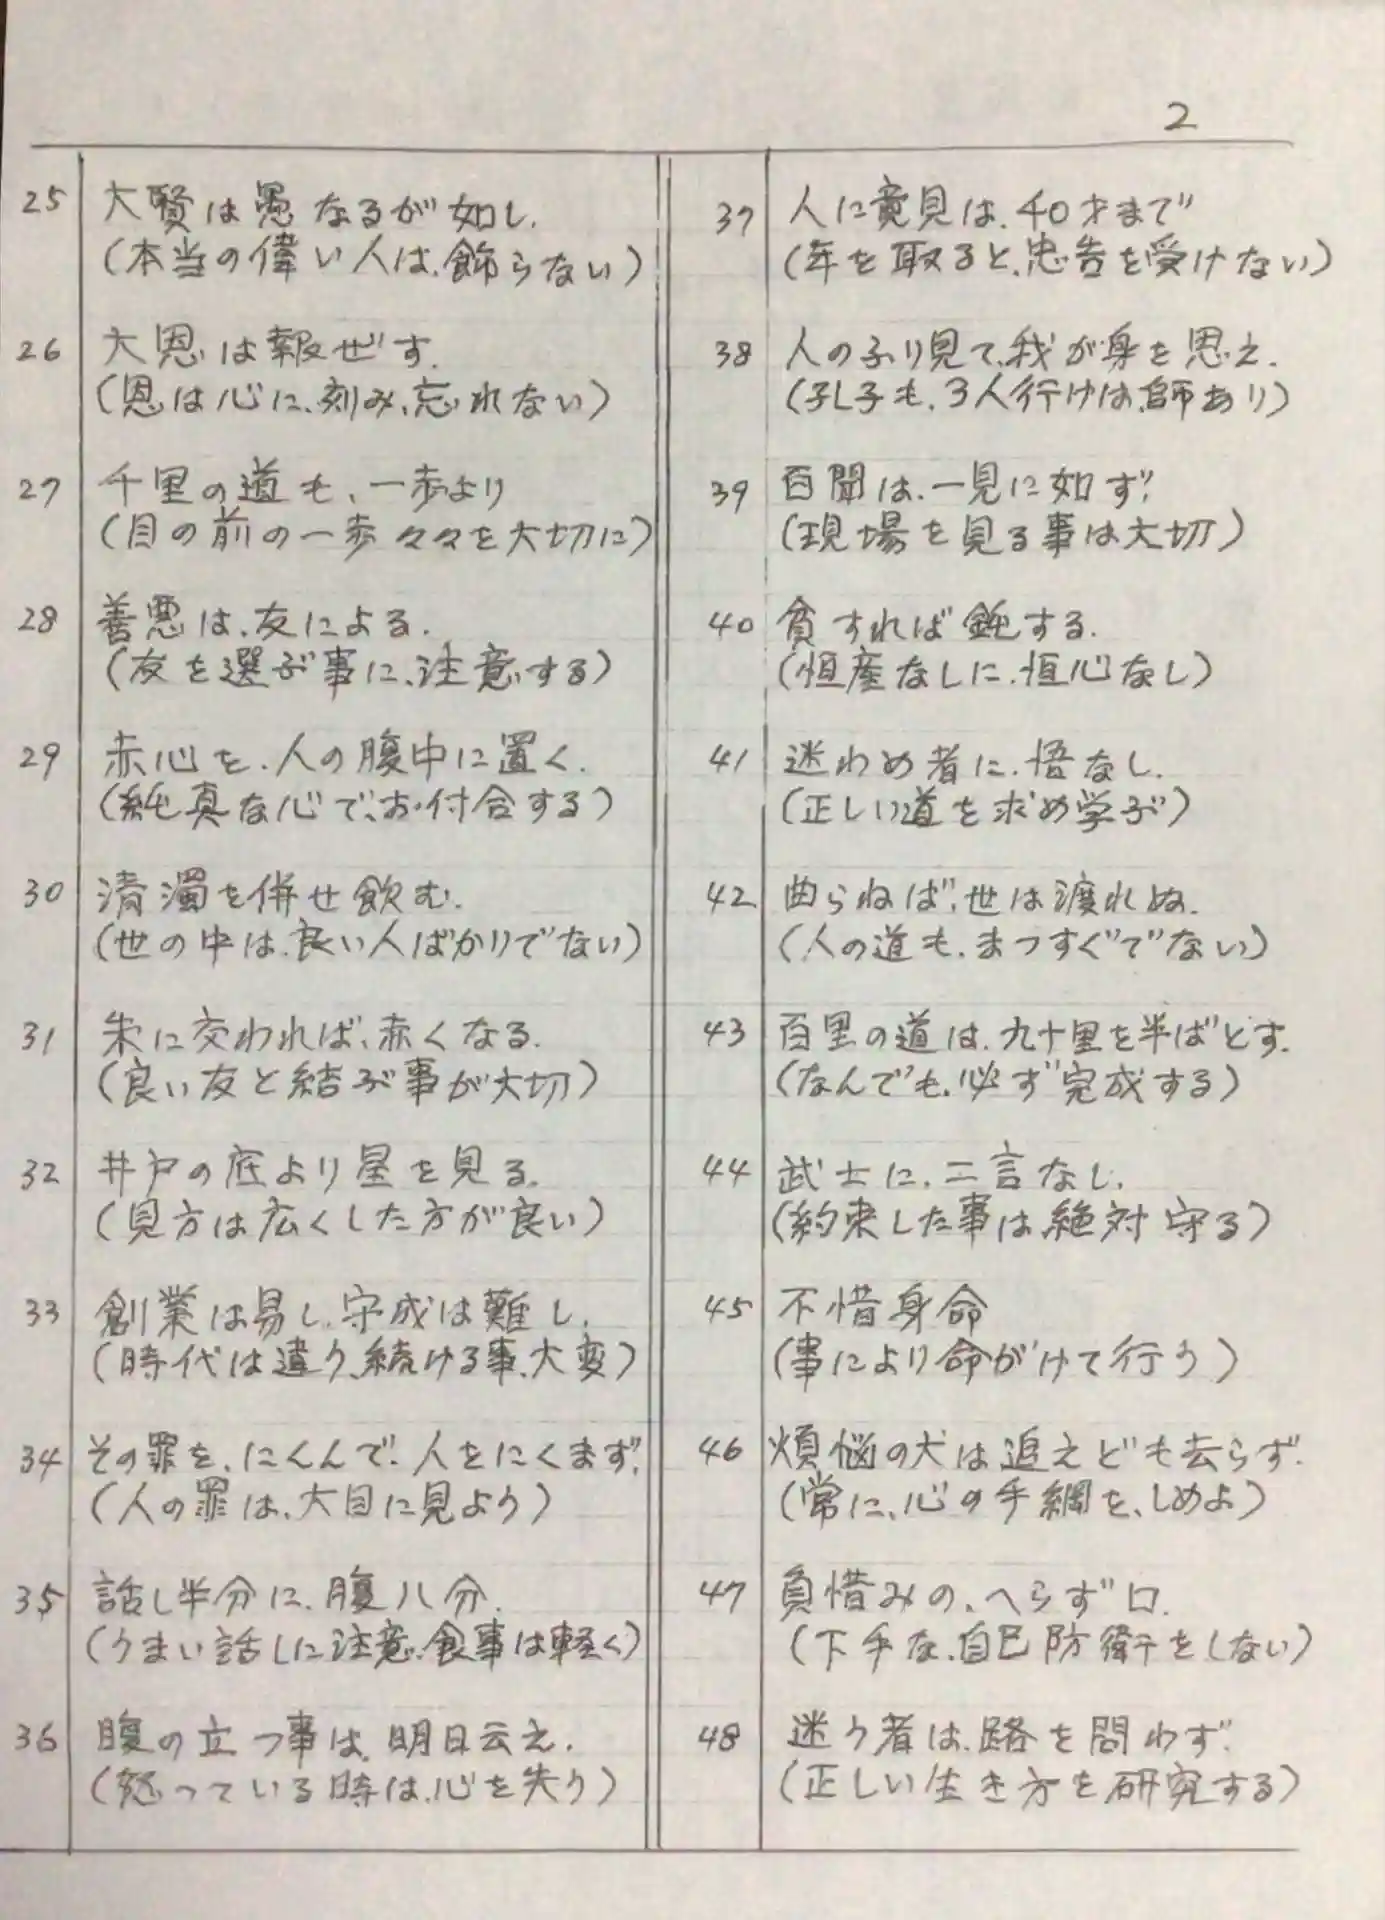 2
25 大賢は愚なるが如し.
(本当の偉い人は、飾らない)
26 大恩は報ぜず.
(恩は心に、刻み、忘れない)
27 千里の道も、一歩より
(目の前の一歩々々を大切に)
28 善悪は、友による.
(友を選ぶ事に、注意する)
29 赤心を、人の腹中に置く.
(純真な心で、お付合する)
30 清濁を併せ飲む.
(世の中は、良い人ばかりでない)
31 朱に交われば、赤くなる.
(良い友と結ぶ事が大切)
32 井戸の底より星を見る.
(見方は広くした方が良い)
33 創業は易し、守成は難し.
(時代は違う、続ける事、大変)
34 その罪を、にくんで、人をにくまず.
(人の罪は、大目に見よう)
35 話し半分に、腹八分.
(うまい話しに注意、食事は軽く)
36 腹の立つ事は、明日云え.
(怒っている時は、心を失う)
37 人に意見は、40才まで
(年を取ると、忠告を受けない)
38 人のふり見て、我が身を思え.
(孔子も、3人行けは、師あり)
39 百聞は、一見に如ず.
(現場を見る事は大切)
40 貧すれば鈍する.
(恒産なしに、恒心なし)
41 迷わめ者に、悟なし.
(正しい道を求め学ぶ)
42 曲らねば、世は渡れぬ.
(人の道も、まつすぐでない)
43 百里の道は、九十里を半ばとす.
(なんでも、必ず完成する)
44 武士に、二言なし.
(約束した事は絶対守る)
45 不惜身命
(事により命がけて行う)
46 煩悩の犬は追えども去らず.
(常に、心の手綱を、しめよ)
47 負惜みの、へらず口.
(下手な、自己防衛をしない)
48 迷う者は、路を問わず.
(正しい生き方を研究する)